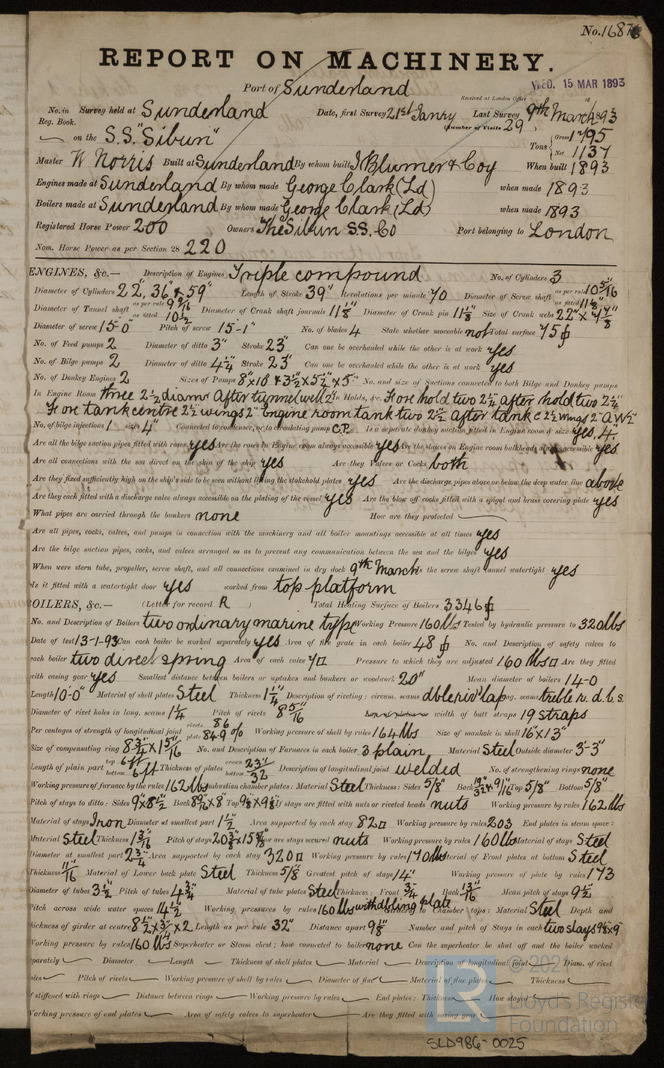 No. 1687
REPORT ON MACHINERY.
Port of Sunderland
Received at London Office WED. 15 MAR 1893
No. in Survey held at Sunderland Date, first Survey 21st Janry Last Survey 9th March 1893
Reg. Book.
(Number of Visits 29)
on the S.S. "Sibun" Tons Gross 1795 Net 1137
Master W Norris Built at Sunderland By whom built J Blumer & Coy When built 1893
Engines made at Sunderland By whom made George Clark (Ld) when made 1893
Boilers made at Sunderland By whom made George Clark (Ld) when made 1893
Registered Horse Power 200 Owners The Sibun S.S. Co Port belonging to London
Nom. Horse Power as per Section 28 220
ENGINES, &c.— Description of Engines Triple compound No. of Cylinders 3
Diameter of Cylinders 22", 36" & 59" Length of Stroke 39" Revolutions per minute 70 Diameter of Screw shaft as per rule 10 5/16 as fitted 11 1/8"
Diameter of Tunnel shaft as per rule 9 9/16 as fitted 10 1/2 Diameter of Crank shaft journals 11 1/8" Diameter of Crank pin 11 1/8" Size of Crank webs 22" x
Diameter of screw 15-0" Pitch of screw 15-1" No. of blades 4 State whether moveable not Total surface 75
No. of Feed pumps 2 Diameter of ditto 3" Stroke 23" Can one be overhauled while the other is at work yes
No. of Bilge pumps 2 Diameter of ditto 4 1/4 Stroke 23" Can one be overhauled while the other is at work yes
No. of Donkey Engines 2 Sizes of Pumps 8" x 10" & 3 1/2 x 5 1/2 x 5" No. and size of Suctions connected to both Bilge and Donkey pumps
In Engine Room three 2 1/2 diamr After tunnel well 2" In Holds, &c. Fore hold two 2 1/2 After hold two 2 1/2"
Fore tank centre 2 1/2 wings 2" Engine room tank two 2 1/2 After tank c 2 1/2 wings 2"
No. of bilge injections 1 size 4" Connected to condenser, or to circulating pump C.P. Is a separate donkey suction fitted in Engine room & size yes, 4
Are all the bilge suction pipes fitted with roses yes Are the roses in Engine room always accessible yes Are the sluices on Engine room bulkheads always accessible yes
Are all connections with the sea direct on the skin of the ship yes Are they Valves or Cocks both
Are they fixed sufficiently high on the ship's side to be seen without lifting the stokehold plates yes Are the discharge pipes above or below the deep water line above
Are they each fitted with a discharge valve always accessible on the plating of the vessel yes Are the blow off cocks fitted with a spigot and brass covering plate yes
What pipes are carried through the bunkers none How are they protected
Are all pipes, cocks, valves, and pumps in connection with the machinery and all boiler mountings accessible at all times yes
Are the bilge suction pipes, cocks, and valves arranged so as to prevent any communication between the sea and the bilges yes
When were stern tube, propeller, screw shaft, and all connections examined in dry dock 9th March Is the screw shaft tunnel watertight yes
Is it fitted with a watertight door yes worked from top platform
BOILERS, &c.— (Letter for record R) Total Heating Surface of Boilers 3346
No. and Description of Boilers two ordinary marine type Working Pressure 160 lbs Tested by hydraulic pressure to 320 lbs
Date of test 13-1-93 Can each boiler be worked separately yes Area of fire grate in each boiler 48 No. and Description of safety valves to
each boiler two direct spring Area of each valve 7 Pressure to which they are adjusted 160 lbs Are they fitted
with easing gear yes Smallest distance between boilers or uptakes and bunkers or woodwork 20" Mean diameter of boilers 14-0
Length 10-0" Material of shell plates Steel Thickness 1 1/4" Description of riveting: circum. seams dble riv lap long. seams treble r. d. b. s.
Diameter of rivet holes in long. seams 1 1/4 Pitch of rivets 8 5/16 width of butt straps 19 straps
Per centages of strength of longitudinal joint rivets 86 plate 84.9 % Working pressure of shell by rules 164 lbs Size of manhole in shell 16" x 13"
Size of compensating ring No. and Description of Furnaces in each boiler 3 plain Material Steel Outside diameter 3'-3"
Length of plain part top 6 ft bottom 6 ft Thickness of plates crown bottom 23/32 Description of longitudinal joint welded No. of strengthening rings none
Working pressure of furnace by the rules 162 lbs Combustion chamber plates: Material Steel Thickness: Sides 5/8" Back 9/16 Top 5/8" Bottom 5/8"
Pitch of stays to ditto: Sides 9 x 8 1/2 Back 8 9/16 x 8 Top If stays are fitted with nuts or riveted heads nuts Working pressure by rules 162 lbs
Material of stays Iron Diameter at smallest part 1 1/2" Area supported by each stay 82 Working pressure by rules 203 End plates in steam space:
Material Steel Thickness 1 3/16 Pitch of stays How are stays secured nuts Working pressure by rules 160 lbs Material of stays Steel
Diameter at smallest part 2 3/4 Area supported by each stay 320 Working pressure by rules 170 lbs Material of Front plates at bottom Steel
Thickness 11/16 Material of Lower back plate Steel Thickness 5/8 Greatest pitch of stays 14" Working pressure of plate by rules 173
Diameter of tubes 3 1/2 Pitch of tubes 4 3/4 Material of tube plates Steel Thickness: Front 3/4 Back 13/16 Mean pitch of stays 9 1/2
Pitch across wide water spaces 14 1/2 Working pressures by rules 160 lbs with dbling plate Girders to Chamber tops: Material Steel Depth and
thickness of girder at centre 8 1/2 x x 2 Length as per rule 32" Distance apart 9 5/8" Number and pitch of Stays in each two stays
Working pressure by rules 160 lbs Superheater or Steam chest; how connected to boiler none Can the superheater be shut off and the boiler worked
separately Diameter Length Thickness of shell plates Material Description of longitudinal joint Diam. of rivet
holes Pitch of rivets Working pressure of shell by rules Diameter of flue Material of flue plates Thickness
If stiffened with rings Distance between rings Working pressure by rules End plates: Thickness How stayed
Working pressure of end plates Area of safety valves to superheater Are they fitted with easing gear
LR
Lloyd's Register
Foundation
SLD986-0025